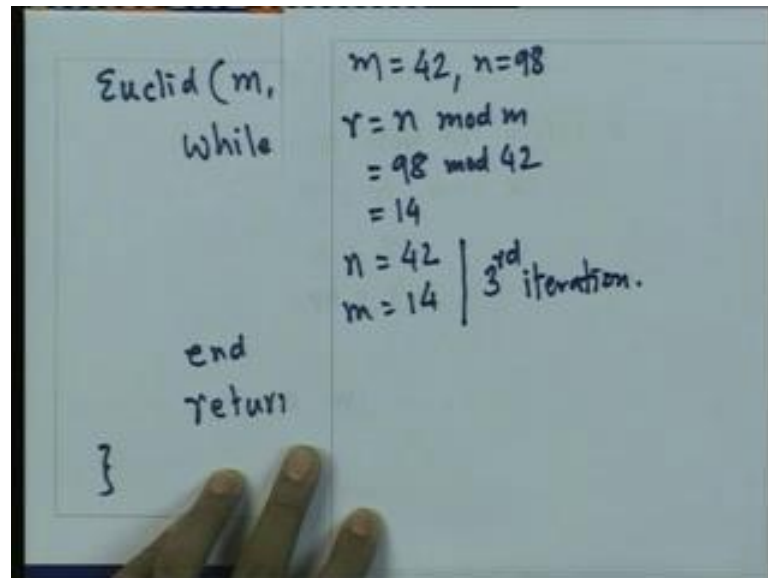 Euclid (m,
While
end
return
}
m = 42, n=98
r = n mod m
= 98 mod 42
= 14
n = 42
m = 14 | 3rd iteration.